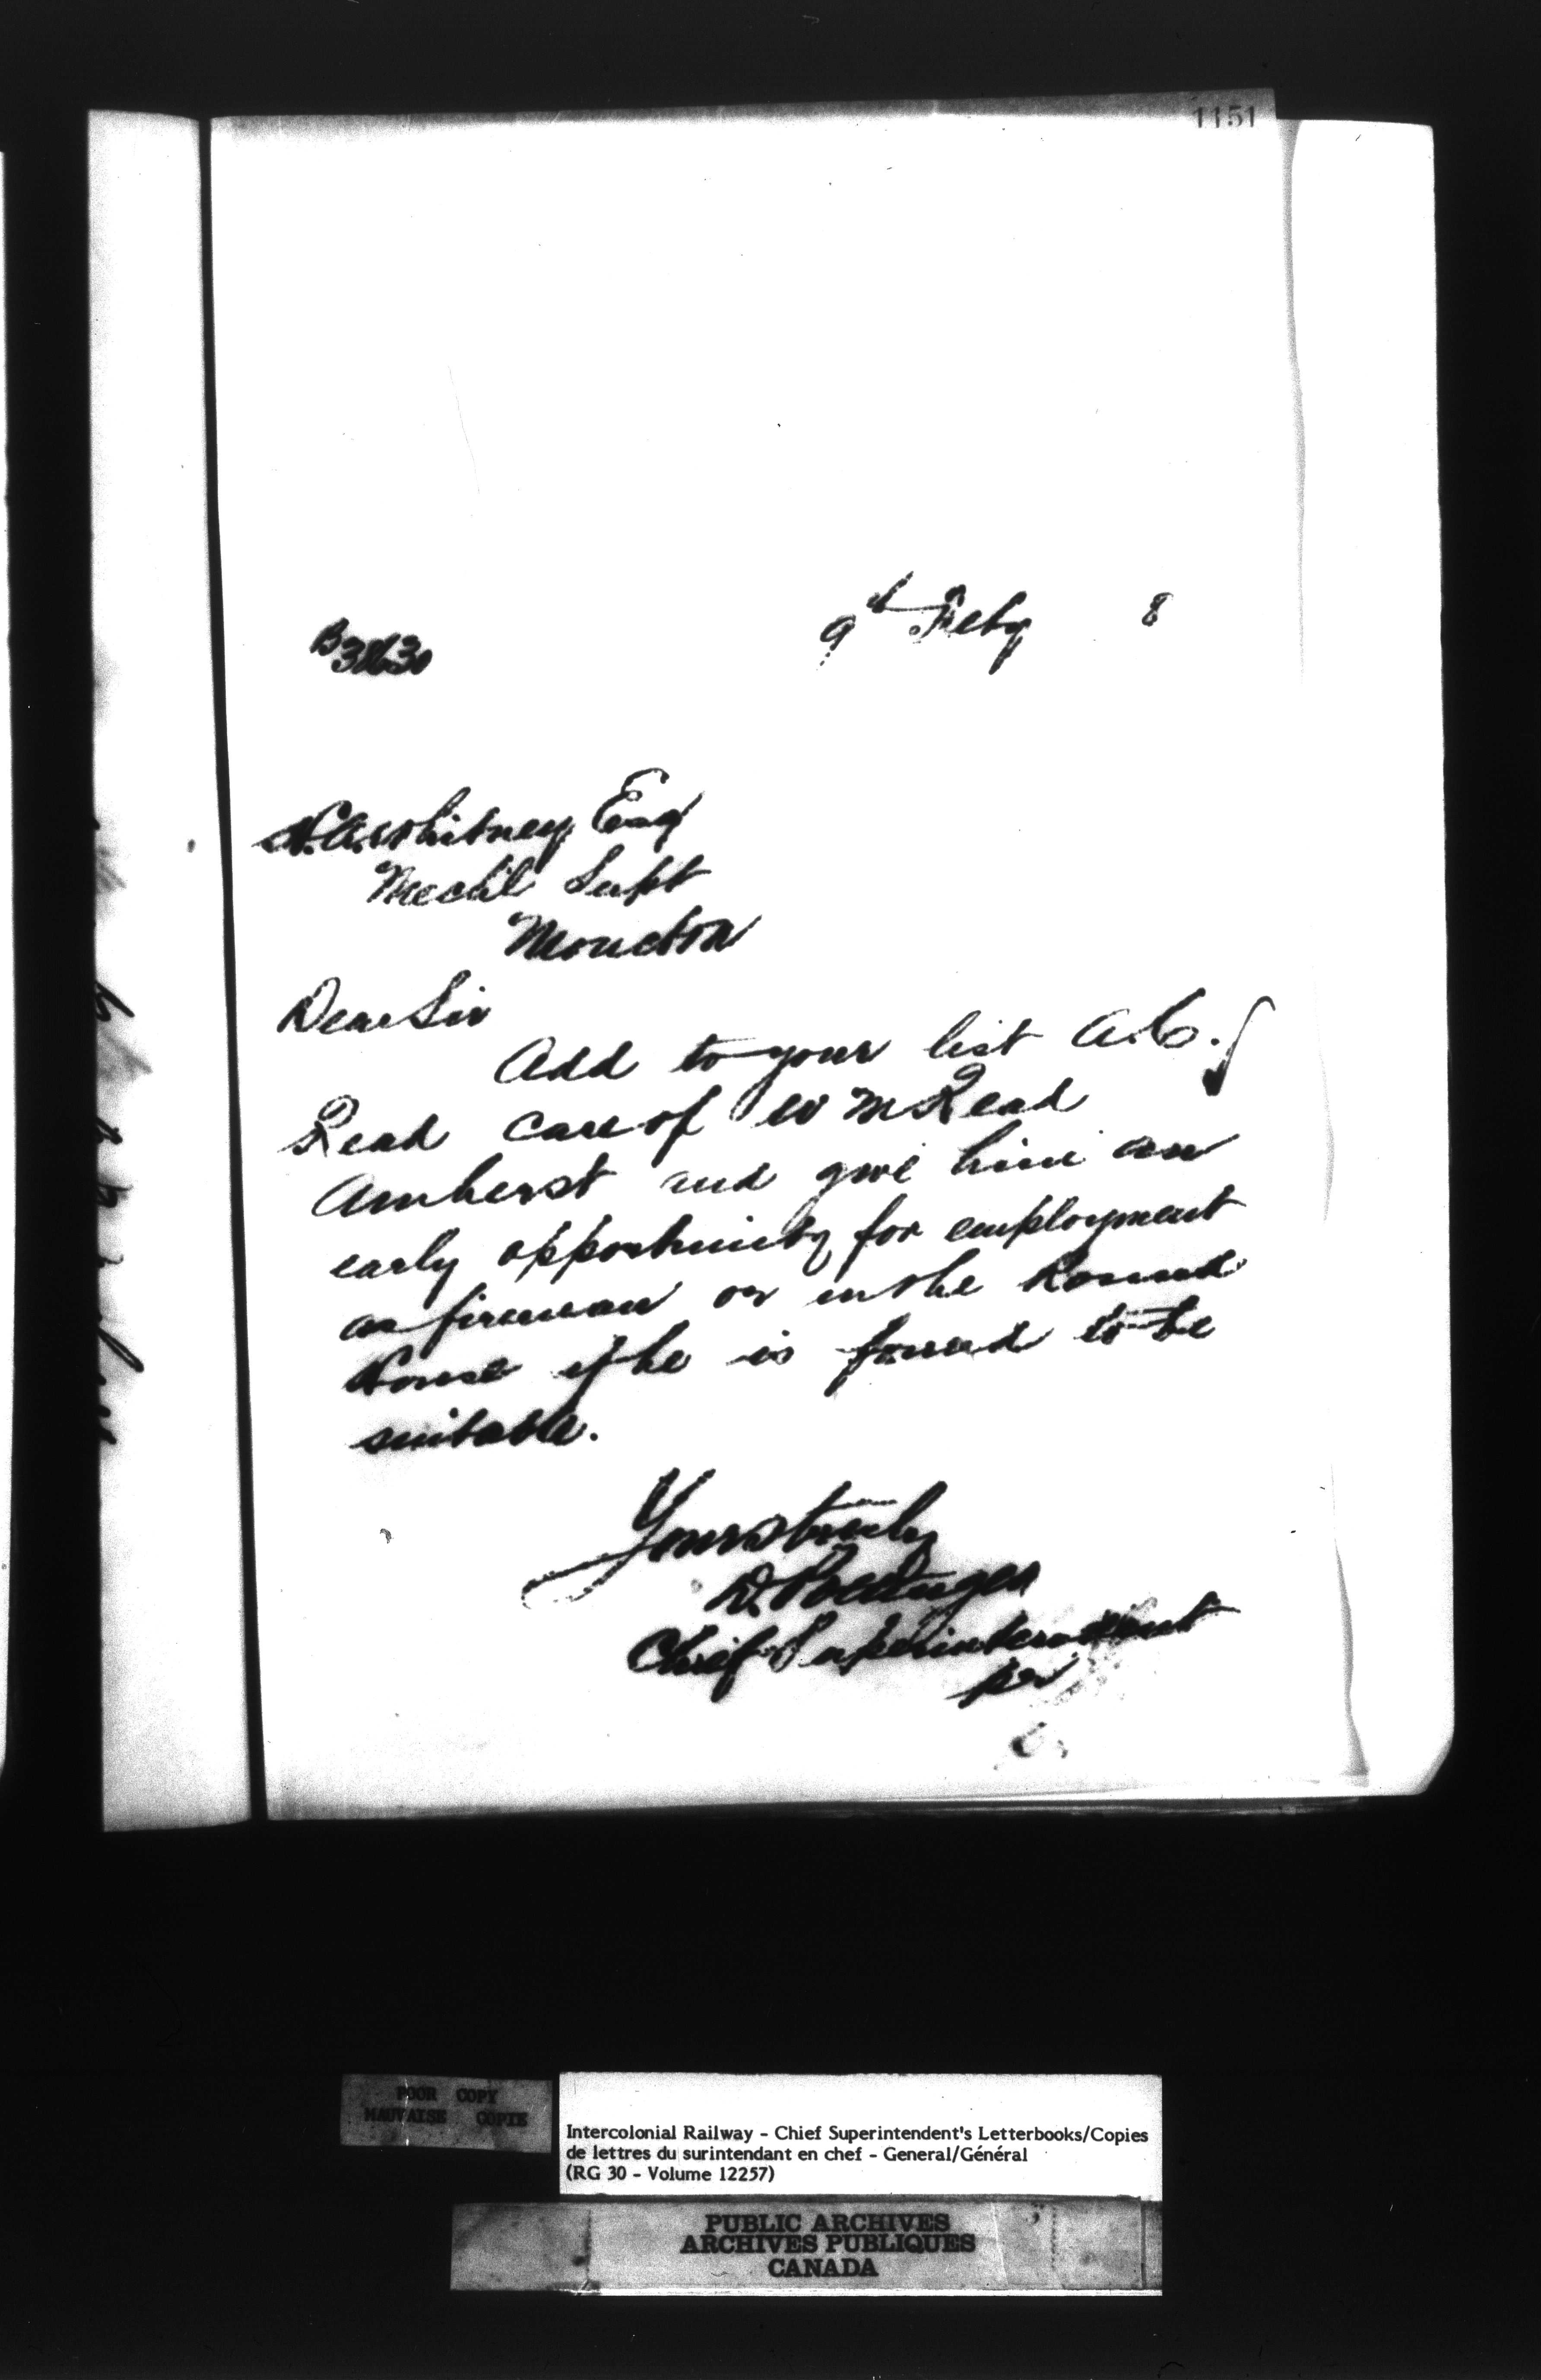 1151
9th Feby 8
H.A. Whitney Esq
Mech'l Supt
Moncton
Dear Sir
Add to your list A.C.
Read care of W M Read
Amherst and give him an
early opportunity for employment
as fireman or in the Round
House if he is found to be
suitable.
Yours truly
D. Pottinger
Chief Superintendent
pr
POOR COPY
MAUVAISE COPIE
Intercolonial Railway - Chief Superintendent's Letterbooks/Copies
de lettres du surintendant en chef - General/Général
(RG 30 - Volume 12257)
PUBLIC ARCHIVES
ARCHIVES PUBLIQUES
CANADA